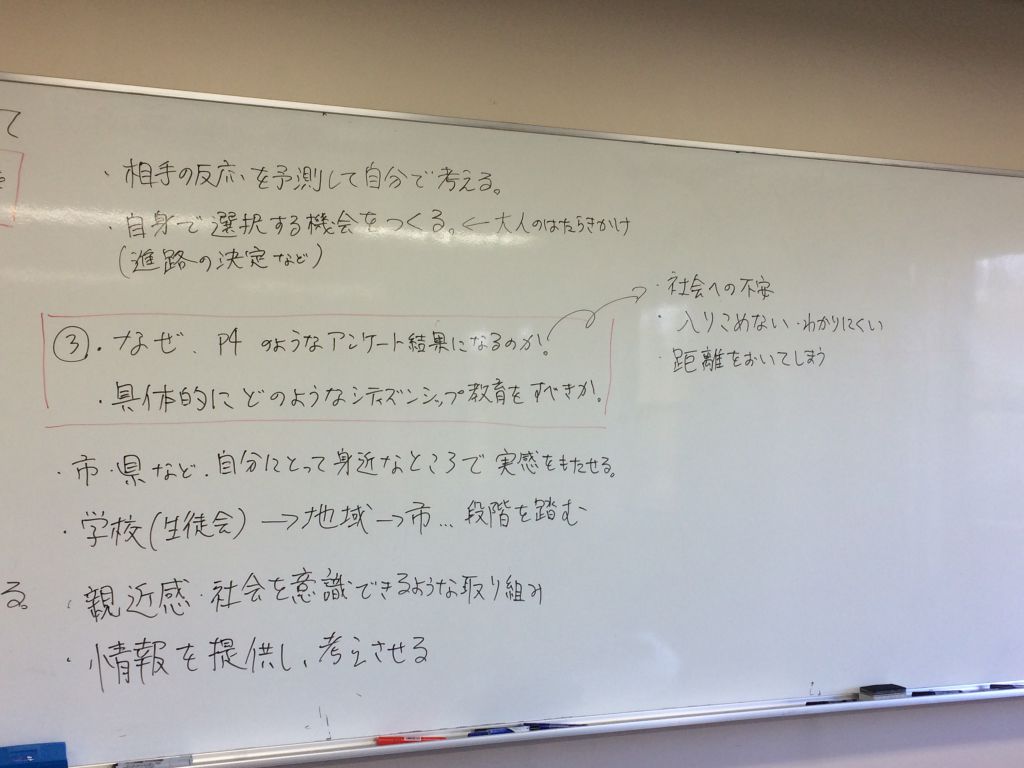 て
・相手の反応を予測して自分で考える。
・自身で選択する機会をつくる。←大人のはたらきかけ
(進路の決定など)
③・なぜ、P4のようなアンケート結果になるのか。
・具体的にどのようなシティズンシップ教育をすべきか。
・社会への不安
・入りこめない・わかりにくい
・距離をおいてしまう
・市・県など、自分にとって身近なところで実感をもたせる。
・学校(生徒会)→地域→市…段階を踏む
る。
・親近感・社会を意識できるような取り組み
・情報を提供し、考えさせる